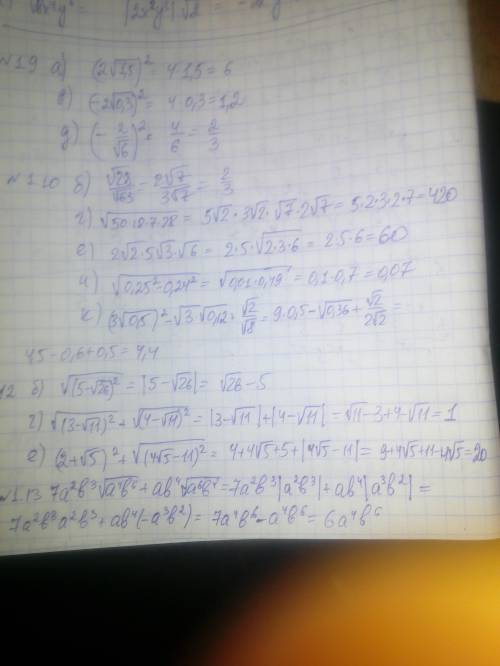 |2x²y⁴|·√2 =
№1.9 а) (2√1,5)² = 4·1,5 = 6
в) (-2√0,3)² = 4·0,3 = 1,2
д) (-2/√6)² = 4/6 = 2/3
№1.10 б) √28/√63 = 2√7/3√7 = 2/3
г) √50·18·7·28 = 5√2·3√2·√7·2√7 = 5·2·3·2·7 = 420
е) 2√2·5√3·√6 = 2·5·√2·3·6 = 2·5·6 = 60
и) √0,25²-0,24² = √0,01·0,49 = 0,1·0,7 = 0,07
к) (3√0,5)² - √3·√0,12 + √2/√8 = 9·0,5 - √0,36 + √2/2√2 =
4,5 - 0,6 + 0,5 = 4,4
12 б) √(5-√26)² = |5-√26| = √26 - 5
г) √(3-√11)² + √(4-√11)² = |3-√11| + |4-√11| = √11 - 3 + 4 - √11 = 1
е) (2+√5)² + √(4√5-11)² = 4+4√5+5+|4√5-11| = 9+4√5+11-4√5 = 20
№1.13 7a²b³√a⁴b⁶ + ab⁴√a⁶b⁴ = 7a²b³|a²b³| + ab⁴|a³b²| =
7a²b³a²b³ + ab⁴(-a³b²) = 7a⁴b⁶ - a⁴b⁶ = 6a⁴b⁶